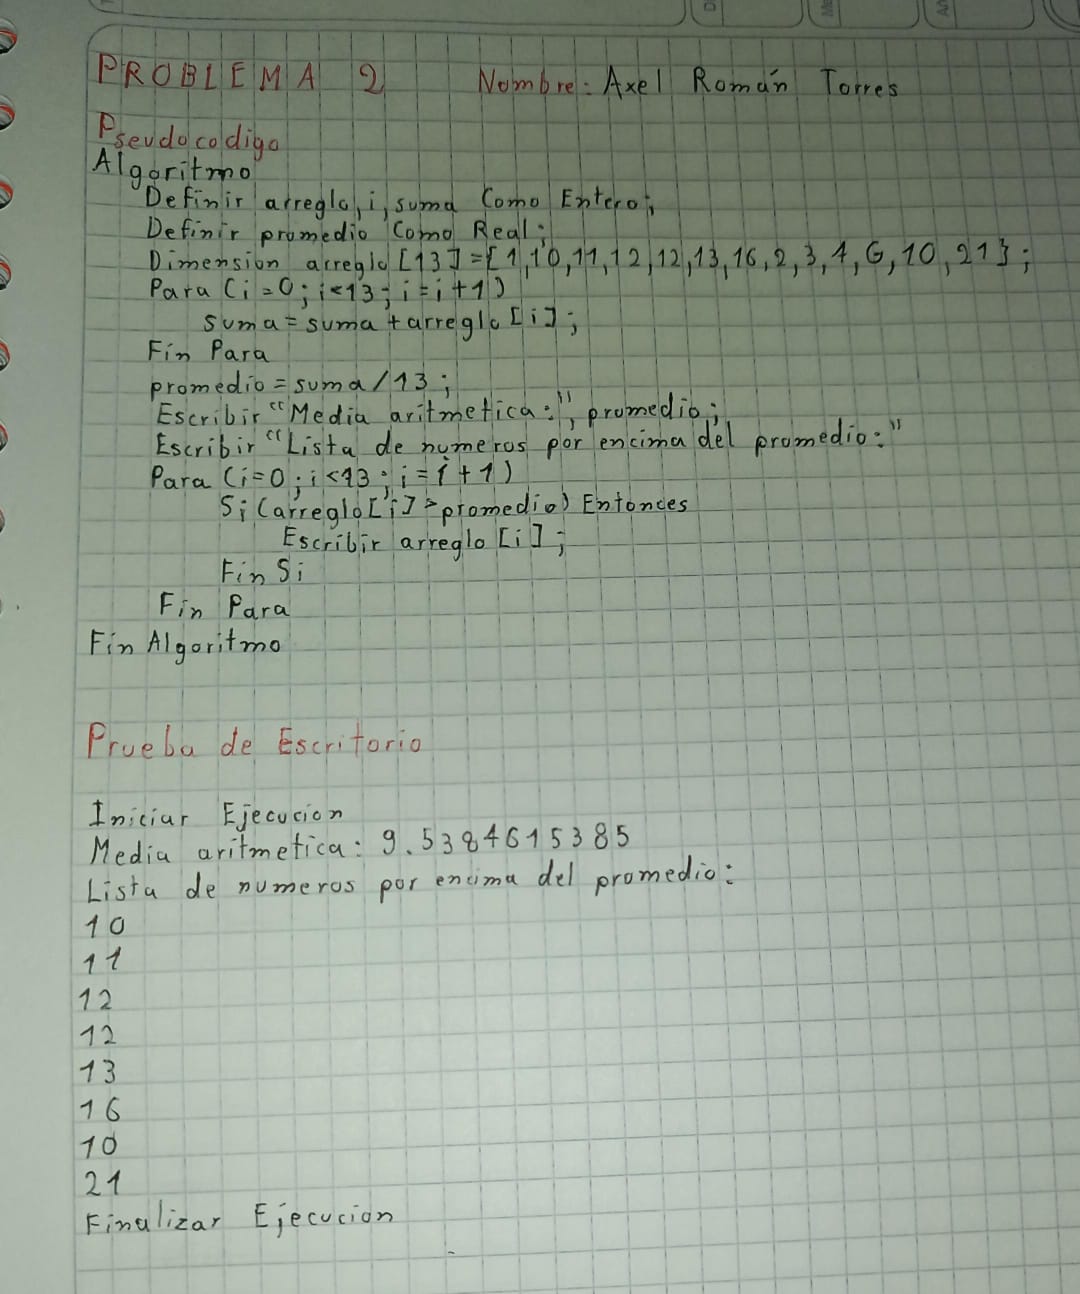 PROBLEMA 2 Nombre: Axel Román Torres
Pseudocodigo
Algoritmo
Definir arreglo, i, suma Como Entero;
Definir promedio Como Real;
Dimension arreglo [13] = {1,10,11,12,12,13,16,2,3,4,6,10,21};
Para (i=0; i<13; i=i+1)
suma = suma + arreglo [i];
Fin Para
promedio = suma/13;
Escribir "Media aritmetica:", promedio;
Escribir "Lista de numeros por encima del promedio:"
Para (i=0; i<13; i=i+1)
Si (arreglo[i] > promedio) Entonces
Escribir arreglo [i];
Fin Si
Fin Para
Fin Algoritmo
Prueba de Escritorio
Iniciar Ejecucion
Media aritmetica: 9.5384615385
Lista de numeros por encima del promedio:
10
11
12
12
13
16
10
21
Finalizar Ejecucion